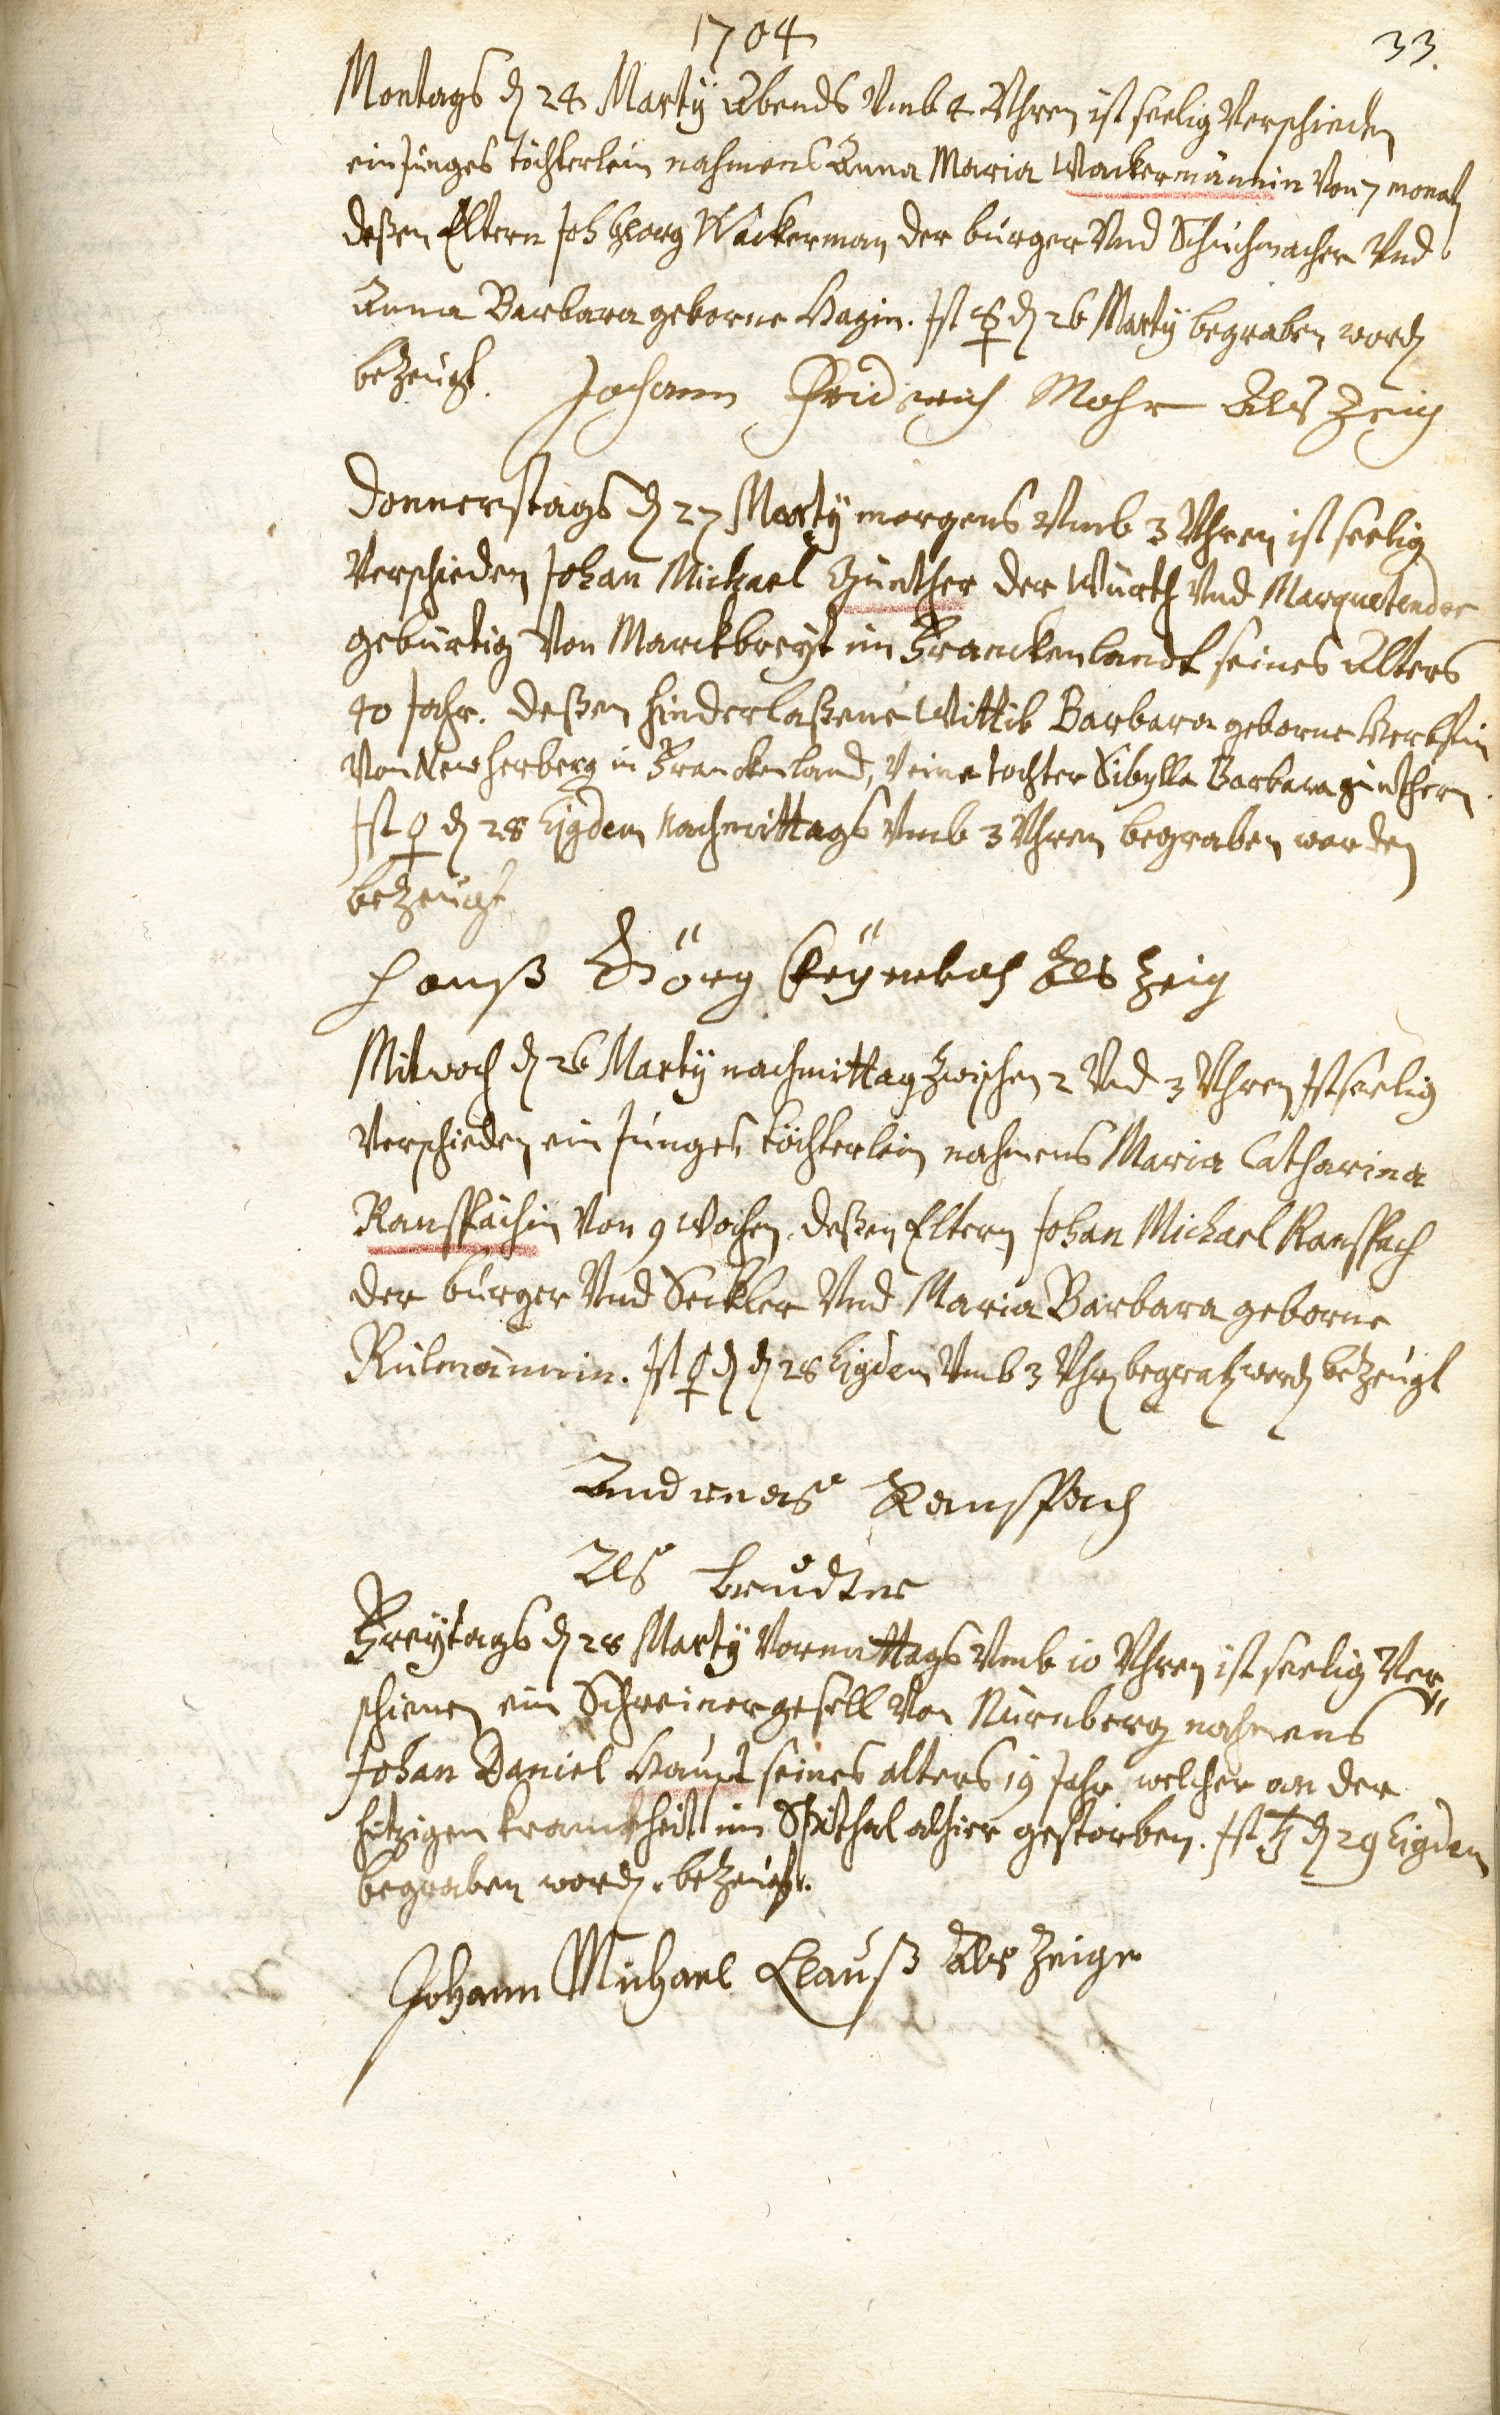 1704
33.
Montags d 24 Martÿ Abends Vmb 4 Vhren ist seelig Verschieden
ein junges töchterlein nahmens Anna Maria Wackermännin Von 7 monath
deßen Eltern Joh Georg Wackerman der burger Vnd Schuchmacher Vnd
Anna Barbara geborne Hagin. Ist ☿ d 26 Martÿ begraben word
bezeugt. Johann Friderich Mohr Als Zeig
Donnerstags d 27 Martÿ morgens Vmb 3 Vhren ist seelig
Verschieden Johan Michael Günther der Würth Vnd Marquetender
gebürtig Von Marckbreyt im Franckenlandt seines Alters
40 Jahr. deßen hinderlaßene Wittib Barbara geborne
Von Newherberg in Franckenland, V eine tochter Sibylla Barbara güntherin.
Ist ♀ d 28 Ejgdem Nachmittags Vmb 3 Vhren begraben worden
bezeugt
Hanß Görg Als Zeig
Mitwoch d 26 Martÿ nachmittag zwischen 2 Vnd 3 Vhren Ist seelig
Verschieden ein junges töchterlein nahmens Maria Catharina
Ranspächin Von 9 Wochen. deßen Eltern Johan Michael Ranspach
der burger Vnd Seckler Vnd Maria Barbara geborne
Rülmännin. Ist ♀ d d 28 Ejgdem Vmb 3 Vhr begrab word bezeugt
Andreas Ranspach
Als bruder
Freytags d 28 Martÿ Vormittags Vmb 10 Vhren ist seelig Ver„
schieden ein Schreinergesell Von Nürnberg nahmens
Johan Daniel Haupt seines alters 19 Jahr welcher an der
hitzigen kranckheit im Spithal alhier gestorben. Ist ♄ d 29 Ejgdem
begraben word. bezeugt.
Johann Michael Clauß Als Zeige